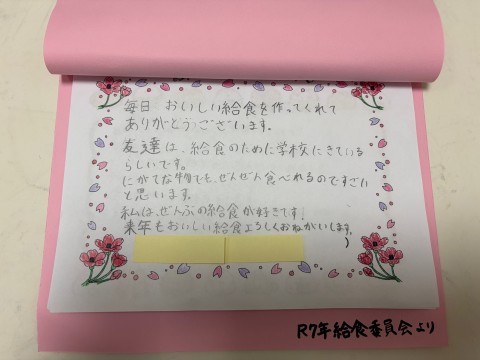 毎日 おいしい給食を作ってくれて
ありがとうございます。
友達は、給食のために学校にきている
らしいです。
にがてな物でも、ぜんぜん食べれるのですごい
と思います。
私は、ぜんぶの給食が好きです!
来年もおいしい給食よろしくおねがいします。
)
R7年給食委員会より